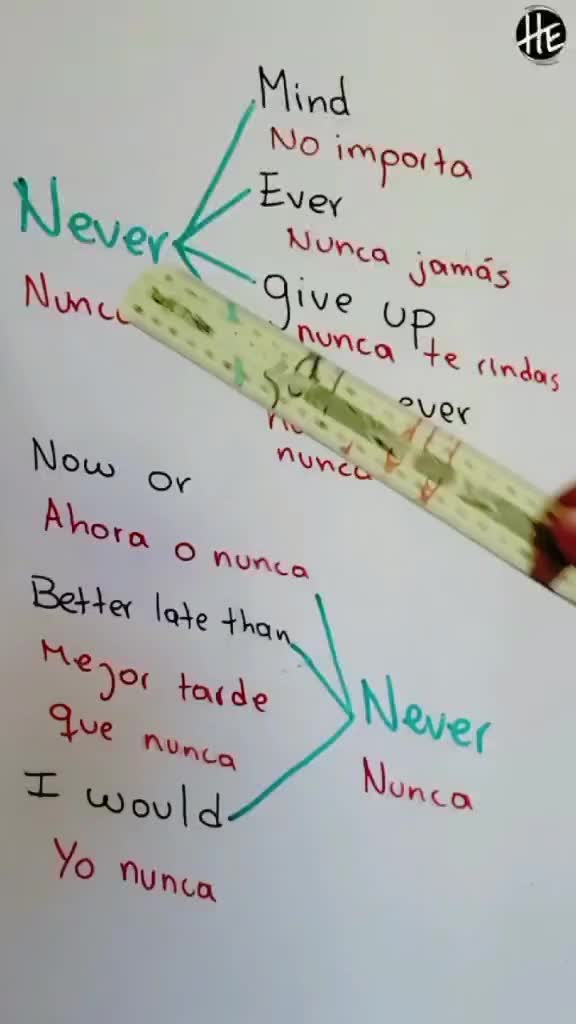 HE
Mind
No importa
Never
Ever
Nunca jamás
give up
nunca te rindas
ever
nunca
Now or
Ahora o nunca
Better late than
Mejor tarde
que nunca
Never
Nunca
I would
Yo nunca